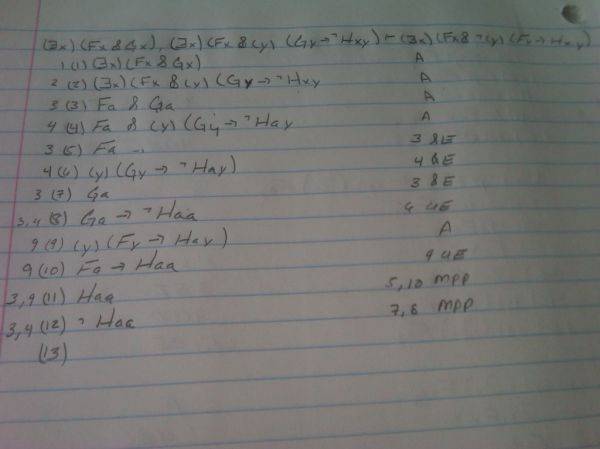 (∃x)(Fx & Gx), (∃x)(Fx & (y)(Gy → ¬Hxy) ⊢ (∃x)(Fx & ¬(y)(Fy → Hxy)
1 (1) (∃x)(Fx & Gx) A
2 (2) (∃x)(Fx & (y)(Gy → ¬Hxy A
3 (3) Fa & Ga A
4 (4) Fa & (y)(Gy → ¬Hay A
3 (5) Fa 3 &E
4 (6) (y)(Gy → ¬Hay) 4 &E
3 (7) Ga 3 &E
3,4 (8) Ga → ¬Haa 6 UE
9 (9) (y)(Fy → Hay) A
9 (10) Fa → Haa 9 UE
3,9 (11) Haa 5,10 MPP
3,4 (12) ¬Haa 7,8 MPP
(13)